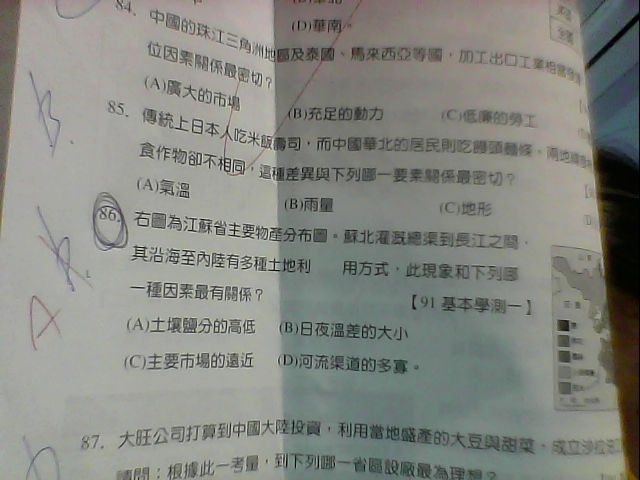 84. 中國的珠江三角洲地區及泰國、馬來西亞等國，加工出口工業相當
(D)華南。
位因素關係最密切？
(A)廣大的市場
(B)充足的動力
(C)低廉的勞工
85. 傳統上日本人吃米飯壽司，而中國華北的居民則吃饅頭麵條。兩地
食作物卻不相同，這種差異與下列哪一要素關係最密切？
(A)氣溫
(B)雨量
(C)地形
86. 右圖為江蘇省主要物產分布圖。蘇北灌溉總渠到長江之間，
其沿海至內陸有多種土地利 用方式，此現象和下列哪
一種因素最有關係？
【91 基本學測一】
(A)土壤鹽分的高低 (B)日夜溫差的大小
(C)主要市場的遠近 (D)河流渠道的多寡。
87. 大旺公司打算到中國大陸投資，利用當地盛產的大豆與甜菜，成立沙拉
請問：根據此一考量，到下列哪一省區設廠最為理想？
B.
A